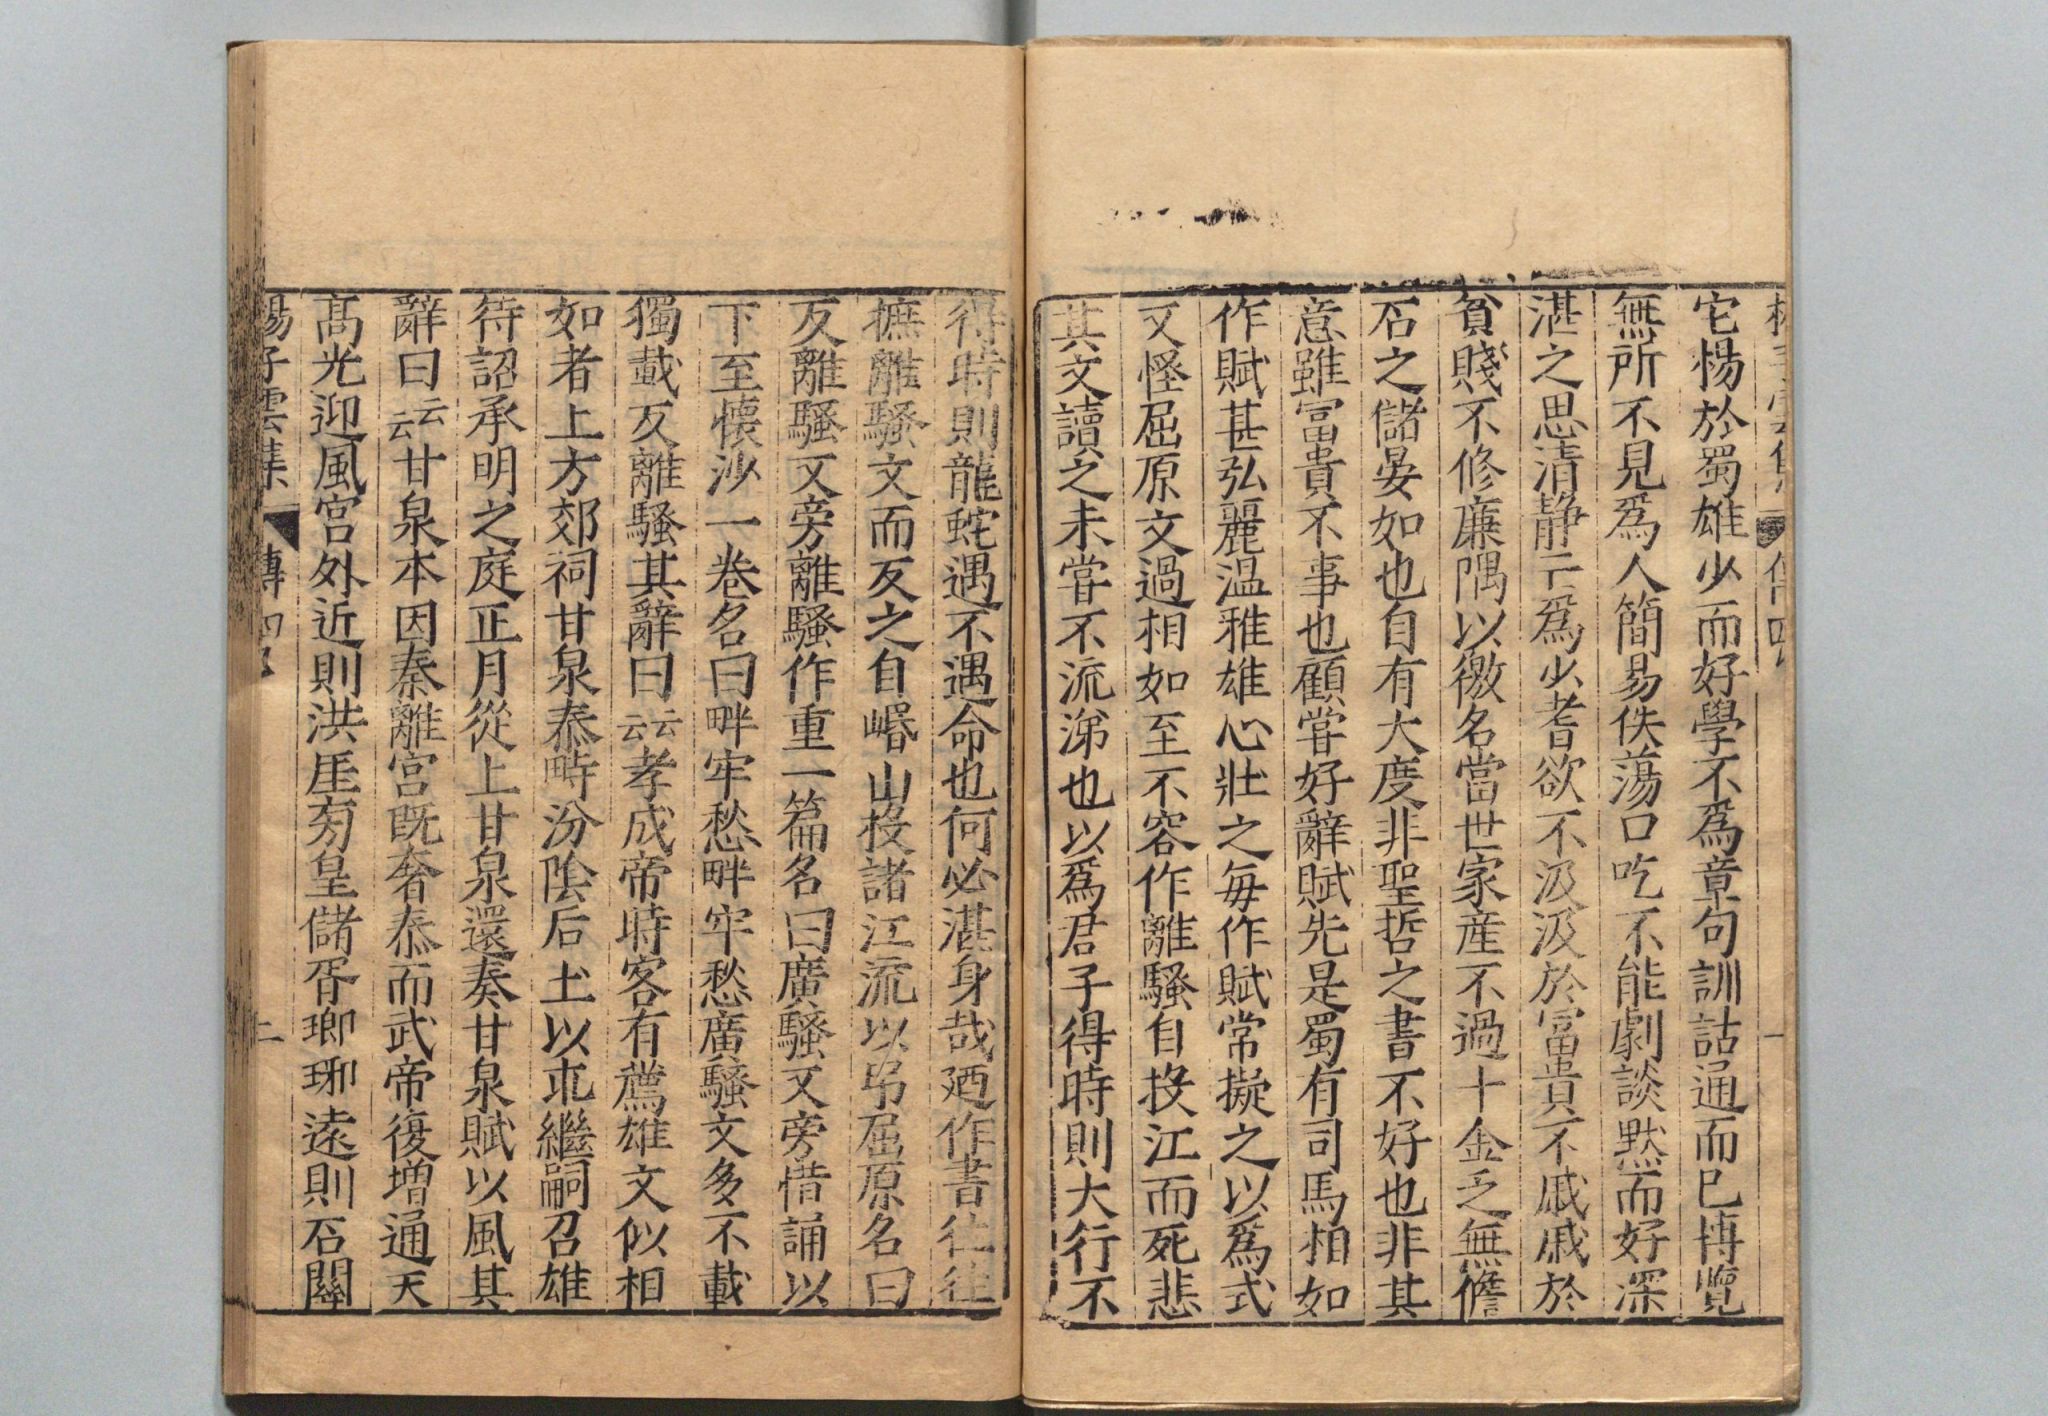 它楊於蜀雄少而好學不為章句訓詁通而已博覽
無所不見為人簡易佚蕩口吃不能劇談默而好深
湛之思清静亡為少耆欲不汲汲於富貴不戚戚於
貧賤不修廉隅以徼名當世家産不過十金乏無儋
石之儲晏如也自有大度非聖哲之書不好也非其
意雖富貴不事也顧甞好辭賦先是蜀有司馬相如
作賦甚弘麗温雅雄心壯之每作賦常擬之以為式
又怪屈原文過相如至不容作離騷自投江而死悲
其文讀之未甞不流涕也以為君子得時則大行不
得時則龍蛇遇不遇命也何必湛身哉廼作書往往
摭離騷文而反之自㟭山投諸江流以弔屈原名曰
反離騷又旁離騷作重一篇名曰廣騷又旁惜誦以
下至懷沙一卷名曰畔牢愁畔牢愁廣騷文多不載
獨載反離騷其辭曰云云孝成帝時客有薦雄文似相
如者上方郊祠甘泉泰畤汾隂后土以求繼嗣召雄
待詔承明之庭正月從上甘泉還奏甘泉賦以風其
辭曰云云甘泉本因秦離宫既奢泰而武帝復増通天
髙光迎風宫外近則洪厓旁皇儲胥瑯琊逺則石關
揚子雲集 傳四 二